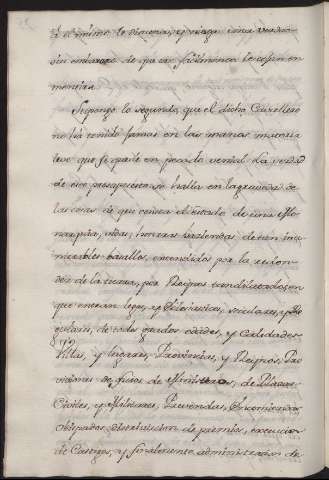 à el mismo le dixeron, y haga
sin embarazo de que por
mentira.
Supongo lo segundo, que el dicho Cavallero
no ha tenido jamas en las manos materia
leve que se quede en pecado venial. La verdad
de este presupuesto se halla en la gravedad de
las cosas de que consta el estado de una Mo
narquia, vidas, honras haziendas de tan in
numerables basallos, encendidos por la redon
dez de la tierra, por Reynos tan dilatados, en
que entran legos, y Eclesiasticos, seculares, y Re
gulares, de todos grados edades, y Calidades
Villas, y lugares, Provincias, y Reynos, Pro
visiones de de Ministros, de Plazas
Civiles, y Militares, Prevendas, Encomiendas
Obispados distribucion de premios, execucion
de Castigos, y finalmente administracion de